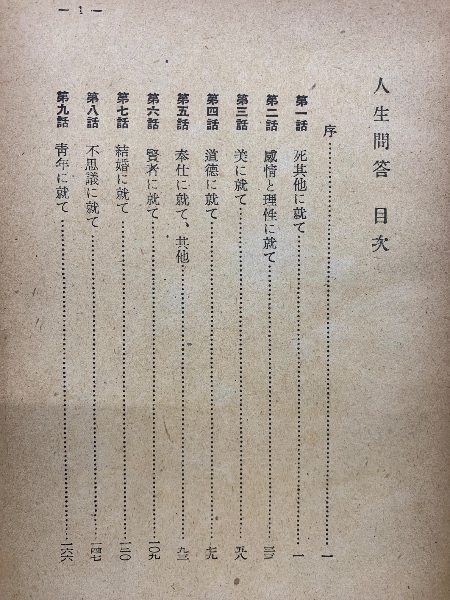 人生問答 目次
序……一
第一話 死其他に就て……一
第二話 感情と理性に就て……三二
第三話 美に就て……五八
第四話 道徳に就て……七九
第五話 奉仕に就て、其他……九三
第六話 賢者に就て……一〇九
第七話 結婚に就て……一二〇
第八話 不思議に就て……一四七
第九話 青年に就て……一六六
— 1 —